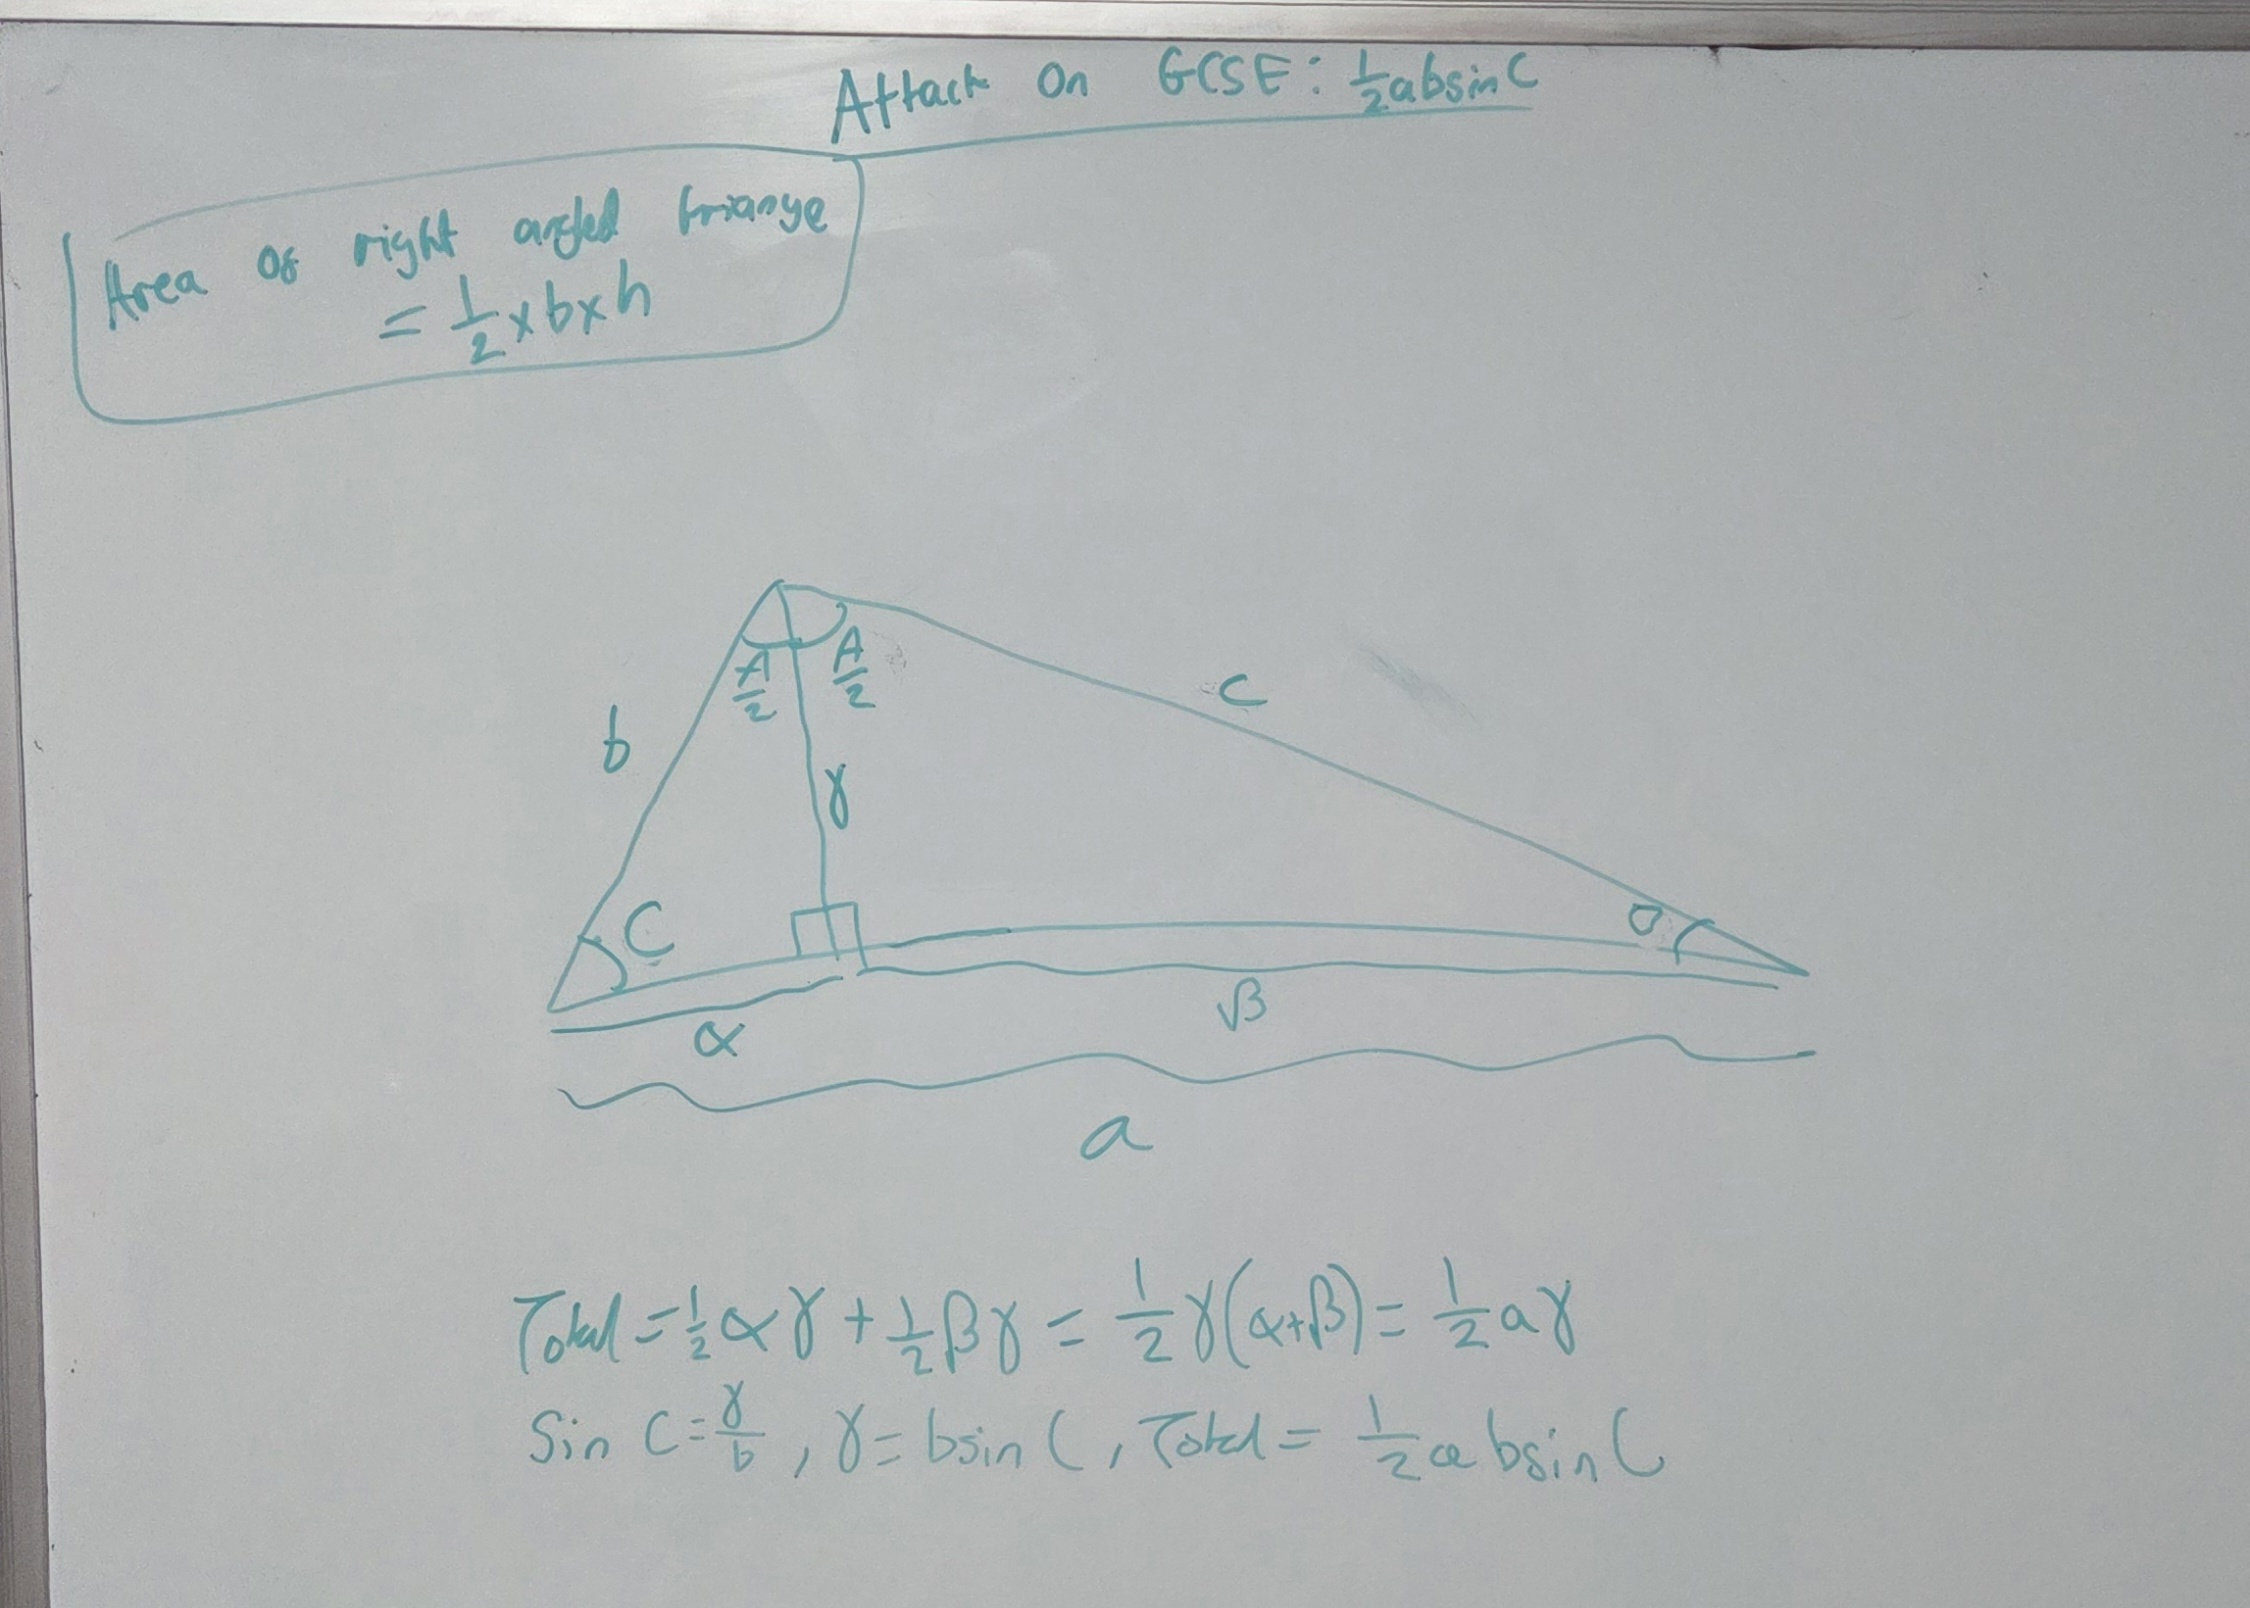 Attack On GCSE: ½absinC
Area of right angled triangle
= ½ × b × h
A/2 A/2
b
c
γ
C
α
β
a
Total = ½αγ + ½βγ = ½γ(α+β) = ½aγ
Sin C = γ/b, γ = bsin C, Total = ½absin C